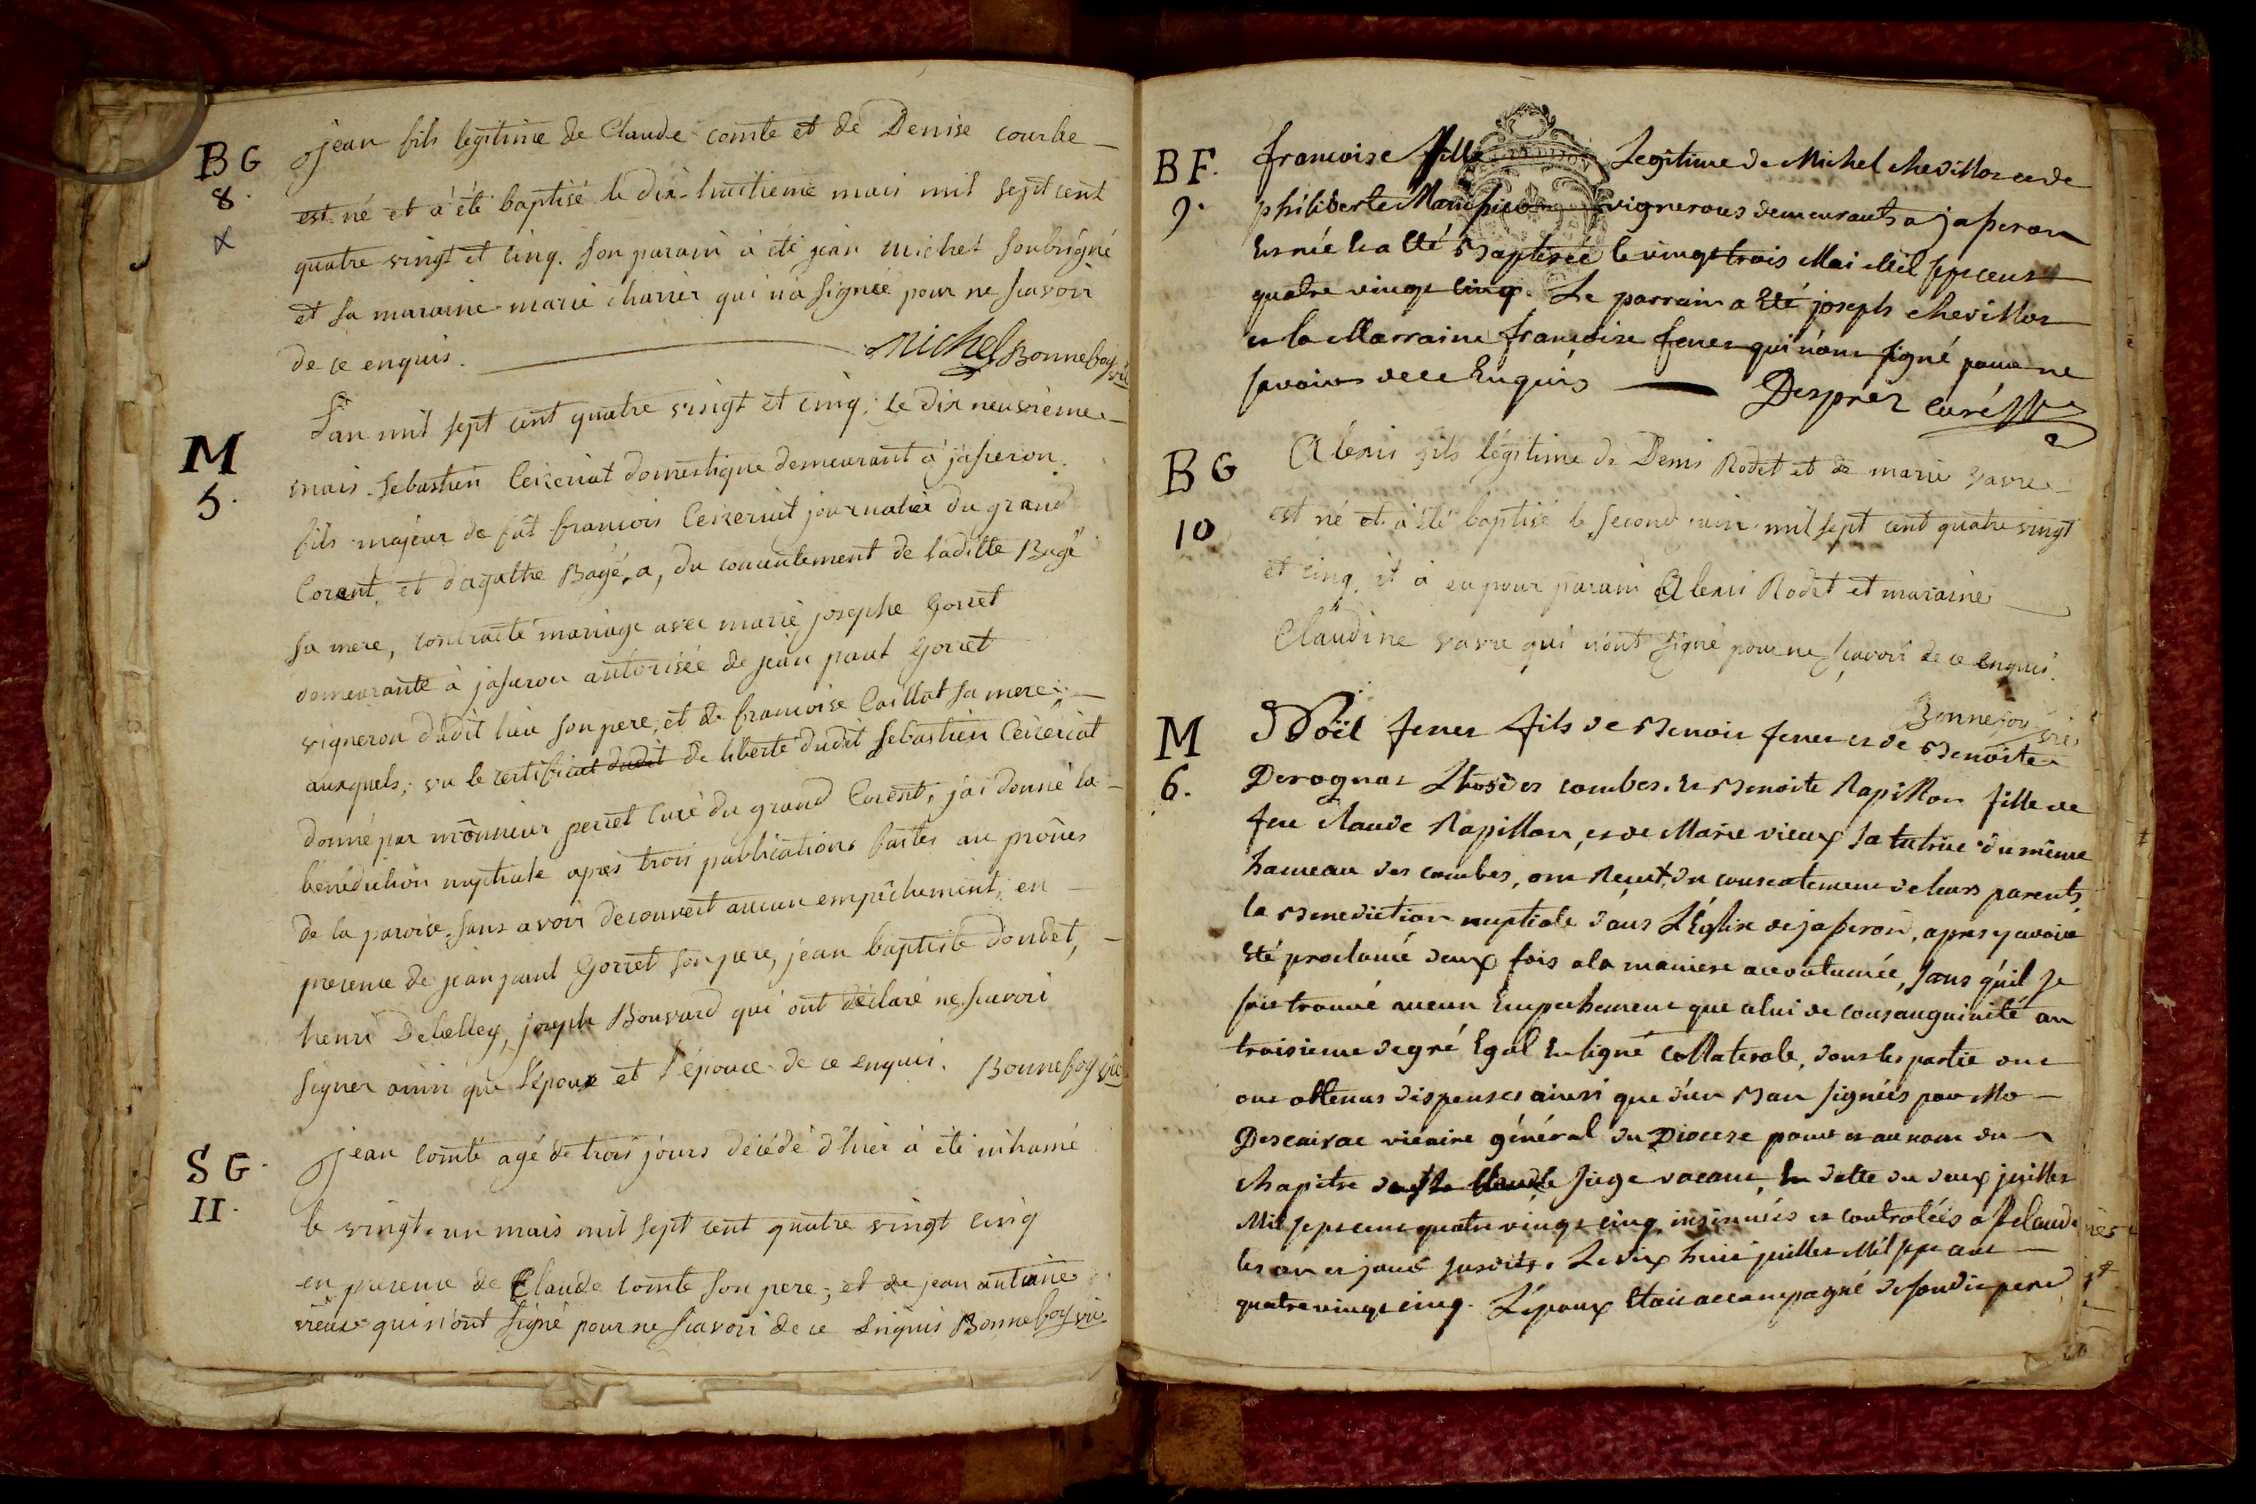 BG
8.
jean fils legitime de Claude comte et de Denise courbe
est né et à été baptisé le dix-huitieme mais mil sept cent
quatre vingt et cinq. son parain à eté jean michel soubrigné
et sa maraine marie charier qui n'a signée pour ne scavoir
de ce enquis.
Michel Bonnefoy vic
M
5.
L'an mil sept cent quatre vingt et cinq, le dix neuvieme
mais. sebastien Ceizeriat domestique demeurant à jasseron
fils majeur de fût francois Ceizeriat journalier du grand
Corent, et d'agathe Bagé, a, du consentement de ladite Bagé
sa mere, contracté mariage avec marie josephe Gorret
demeurante à jasseron autorisée de jean paul Gorret
vigneron dudit lieu son pere, et de francoise Caillat sa mere;
auxquels, vu le certificat dudit de liberté dudit sebastien Ceizeriat
donné par monsieur perret Curé du grand Corent, j'ai donné la
bénédiction nuptiale après trois publications faites au prônes
de la paroise, sans avoir decouvert aucun empêchement, en
presence de jean paul Gorret son pere, jean baptiste Dondet,
henri Debelley, joseph Bouvard qui ont déclaré ne scavoir
signer ainsi que l'époux et l'épouce de ce enquis. Bonnefoy vic
SG
11.
jean comte agé de trois jours décédé d'hier à été inhumé
le vingt-un mais mil sept cent quatre vingt cinq
en presence de Claude comte son pere, et de jean antoine
vieux qui n'ont signé pour ne scavoir de ce enquis Bonnefoy vic
BF.
9.
francoise fille Legitime de Michel chevillon et de
philiberte vignerons demeurants a jasseron
est née et a Eté Baptisée le vingt trois Mai Mil sept cent
quatre vingt cinq. Le parrain a Eté joseph chevillon
et la Marraine francoise fenet qui n'ont signé pour ne
savoir de ce Enquis
Desprez curé
BG
10
Alexis fils légitime de Denis Rodet et de marie vavre
est né et à été baptisé le second juin mil sept cent quatre vingt
et cinq, et à eu pour parain Alexis Rodet et maraine
Claudine vavre qui n'ont signé pour ne scavoir de ce enquis.
Bonnefoy vic
M
6.
Noël fenet fils de Benoit fenet et de Benoite
Derognat des combes. et Benoite Rapillon fille de
feu claude Rapillon, et de Marie vieux sa tutrice du même
hameau des combes, ont Reçut, du consentement de leurs parents,
la Benediction nuptiale dans L'Église de jasseron, apres y avoir
Eté proclamé deux fois a la maniere accoutumée, sans qu'il se
soit trouvé aucun Empechement que celui de consanguinité au
troisieme degré Egal En ligne Collaterale, dont les partie ont
ont obtenus dispenses ainsi que d'un Ban signées par Mo
Descairac vicaire général du Diocese pour et au nom du
chapitre de St Claude siege vacant, En datte du deux juillet
Mil sept cent quatre vingt cinq, insinuées et controlées a St claude
les an et jour susdits. Le dix huit juillet Mil sept cent
quatre vingt cinq. L'époux Etait accompagné de son dit pere